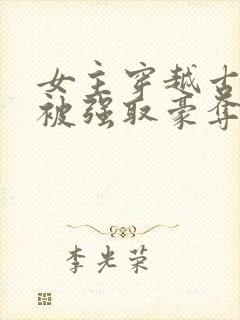 女主穿越古
被强取豪夺
李光荣